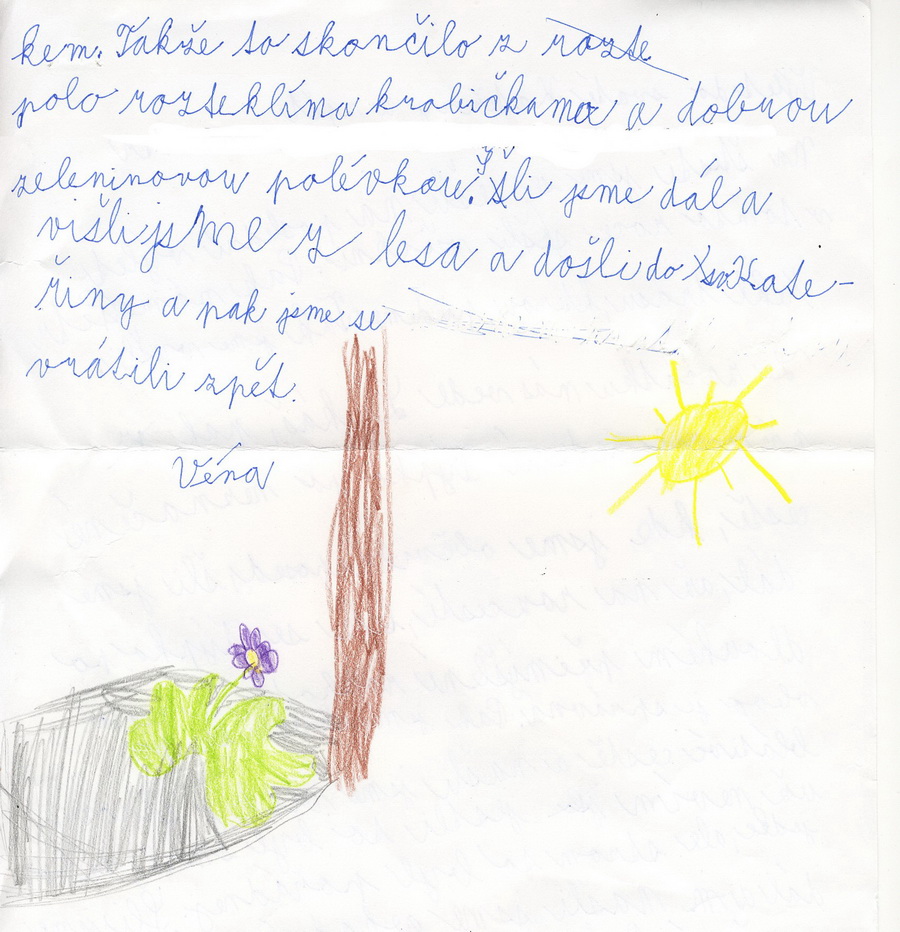 kem. Takže to skončilo z rozte
polo rozteklíma krabičkama a dobrou
zeleninovou polévkou. Šli jsme dál a
višli jsme z lesa a došli do Kate-
řiny a pak jsme se
vrátili zpět.
Véna